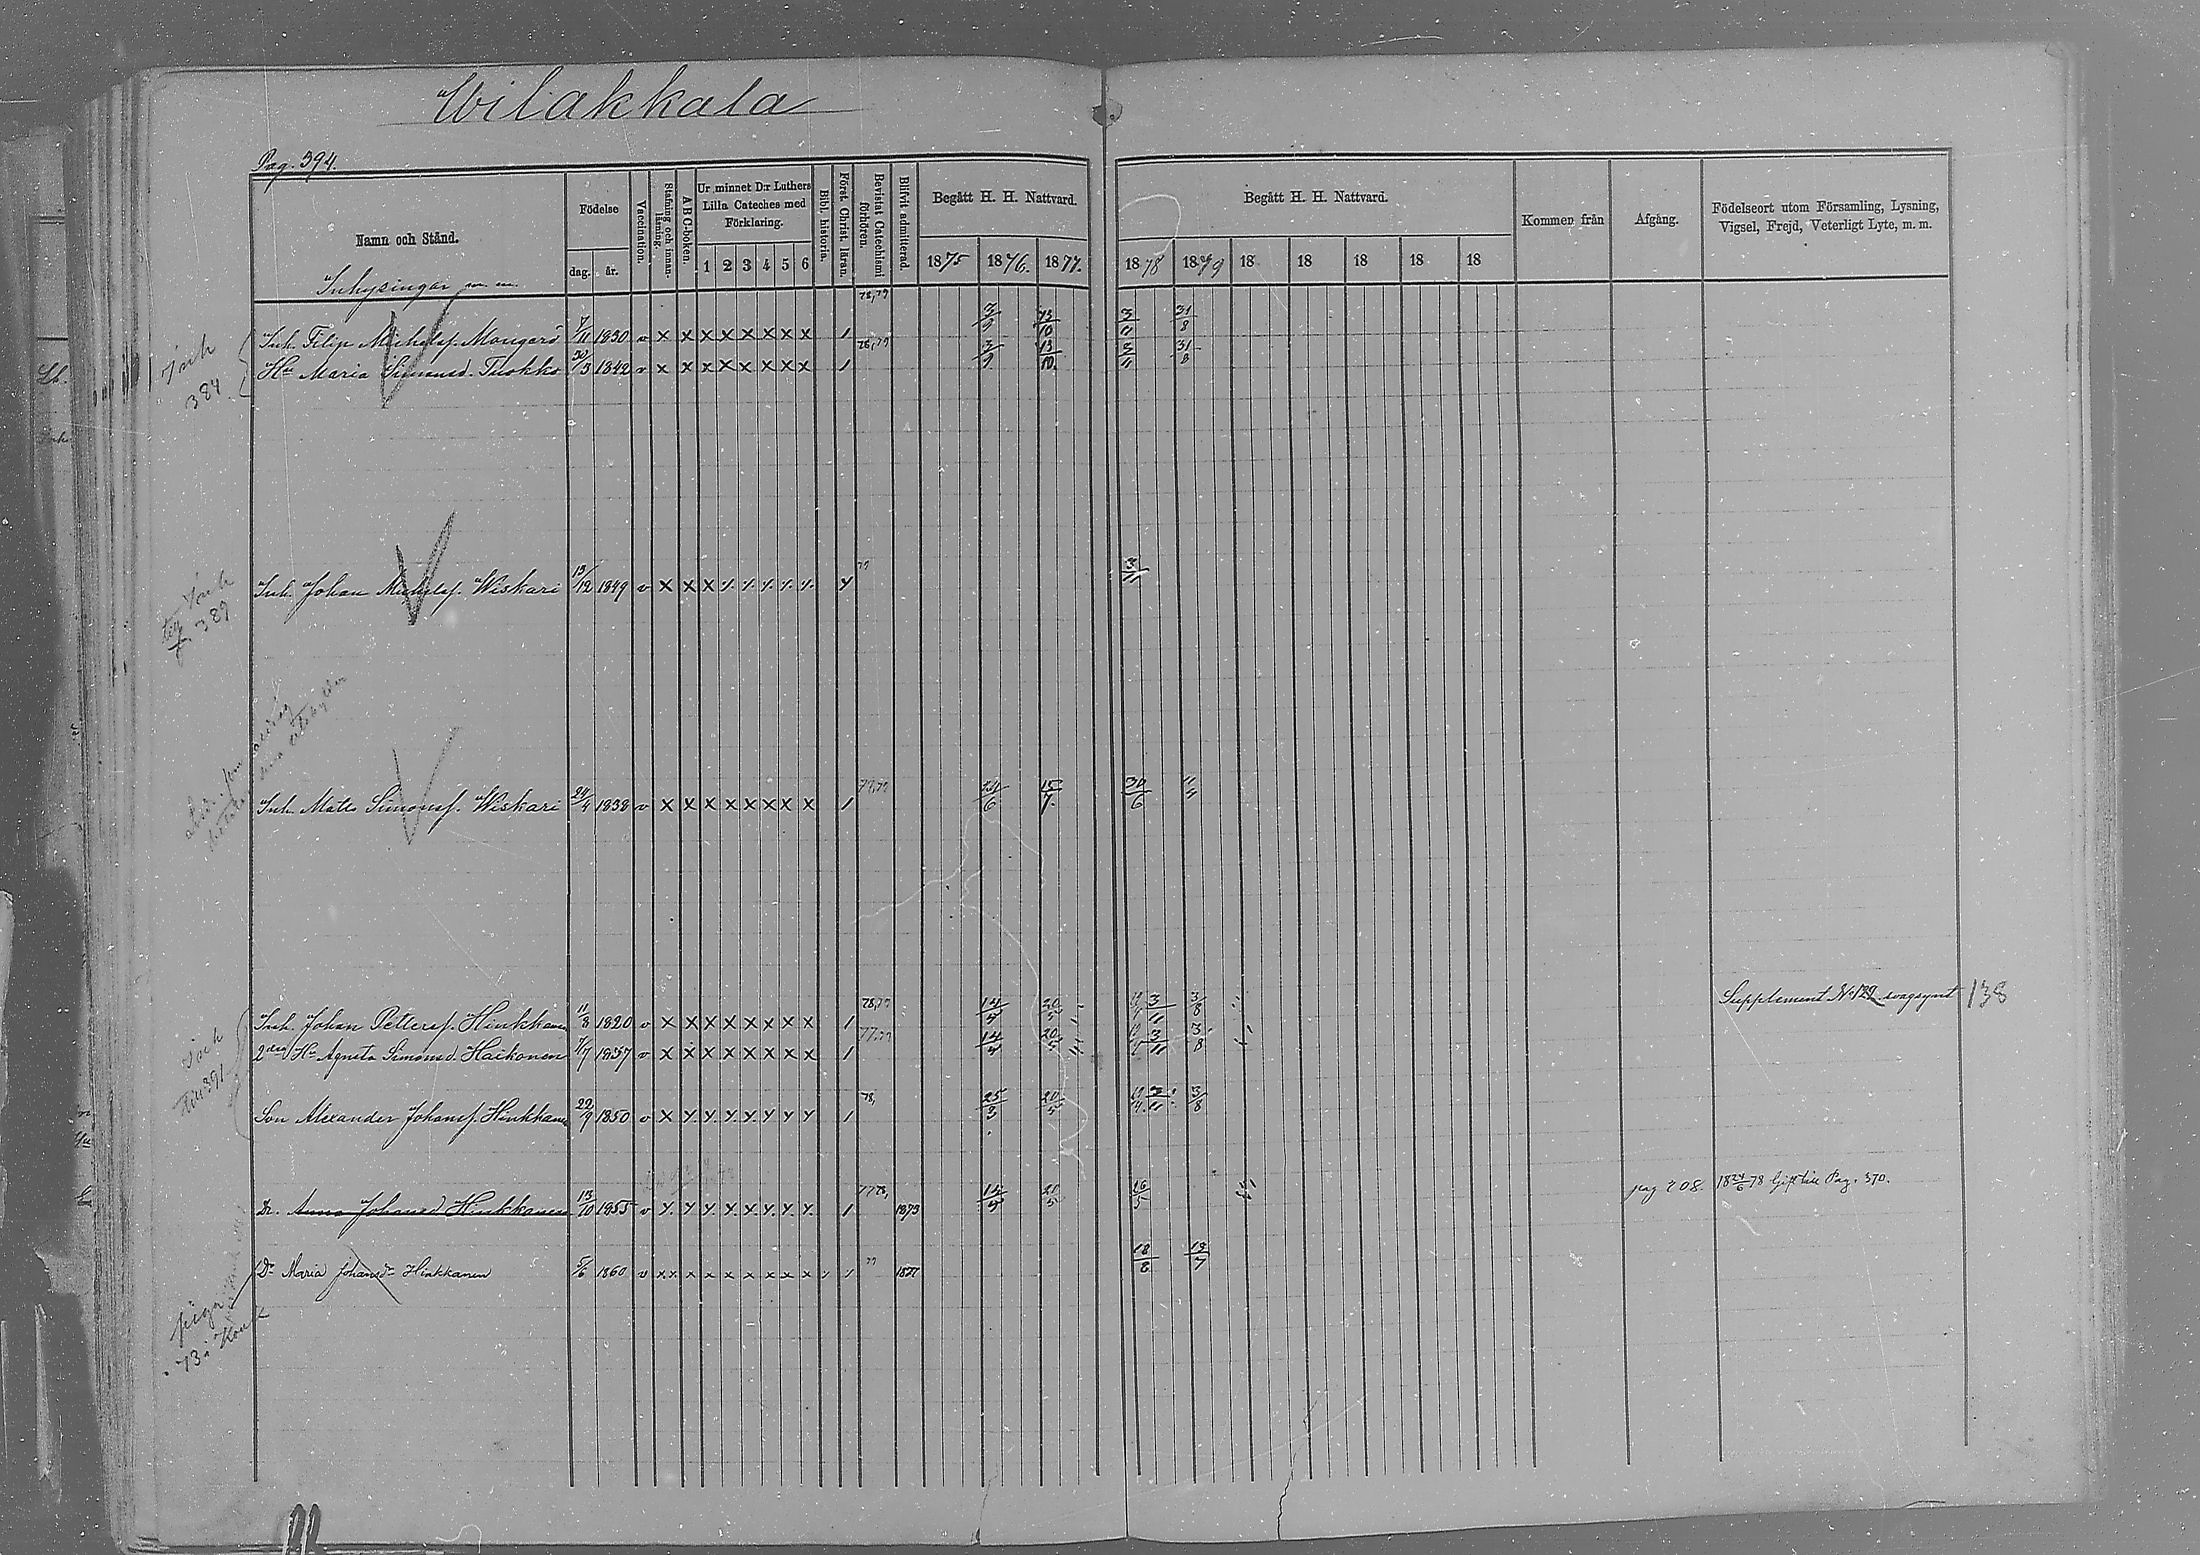 Wilakkala
Pag. 394.
Namn och Stånd.
Inhysingar m. m.
Födelse
dag. år.
Vaccination.
Stafning och innanläsning.
A B C-boken.
Ur minnet D:r Luthers Lilla Cateches med Förklaring.
1 2 3 4 5 6
Bibl. historia.
Först. Christ. läran.
Bevistat Catechismi förhören.
Blifvit admitterad.
Begått H. H. Nattvard.
1875 1876. 1877.
Begått H. H. Nattvard.
1878 1879 18 18 18 18 18
Kommen från
Afgång.
Födelseort utom Församling, Lysning, Vigsel, Frejd, Veterligt Lyte, m. m.
Inh. Filip Michelsf. Mongars 7/11 1830 v x x x x x x x x 1 78,79 3/9 13/10 3/11 31/8
Hu Maria Simonsd. Tuokko 30/3 1842 v x x x x x x x x 1 78,79 3/9 13/10. 3/11 31/8
384
Inh. Johan Michelsf. Wiskari 13/12 1849 v x x x 79 3/11
389
Inh. Matts Simonsf. Wiskari 24/4 1838 v x x x x x x x x 1 77,79 30/6
Inh. Johan Pettersf. Hinkkanen 11/8 1820 v x x x x x x x x 1 78,79 14/5 20/5 3/11 3/8 Supplement No 129 svagsynt 138
2dra Hu Agneta Simonsd Haikonen 7/7 1837 v x x x x x x x x 1 77,79 14/5 20/5 3/11 3/8
391
Son Alexander Johansf. Hinkkanen 22/9 1850 v x 1 78, 25/3 20/5 3/11 3/8
Dr. Anna Johansd Hinkkanen 13/10 1855 v 1 77 78, 1873 14/5 20/5 26/5 pag 208. 18 24/6 78 Gift till Pag. 370.
Dr Maria Johansdr Hinkkanen 5/6 1860 v x x x x x x x x 1 79 1877 18/8 13/7
piga